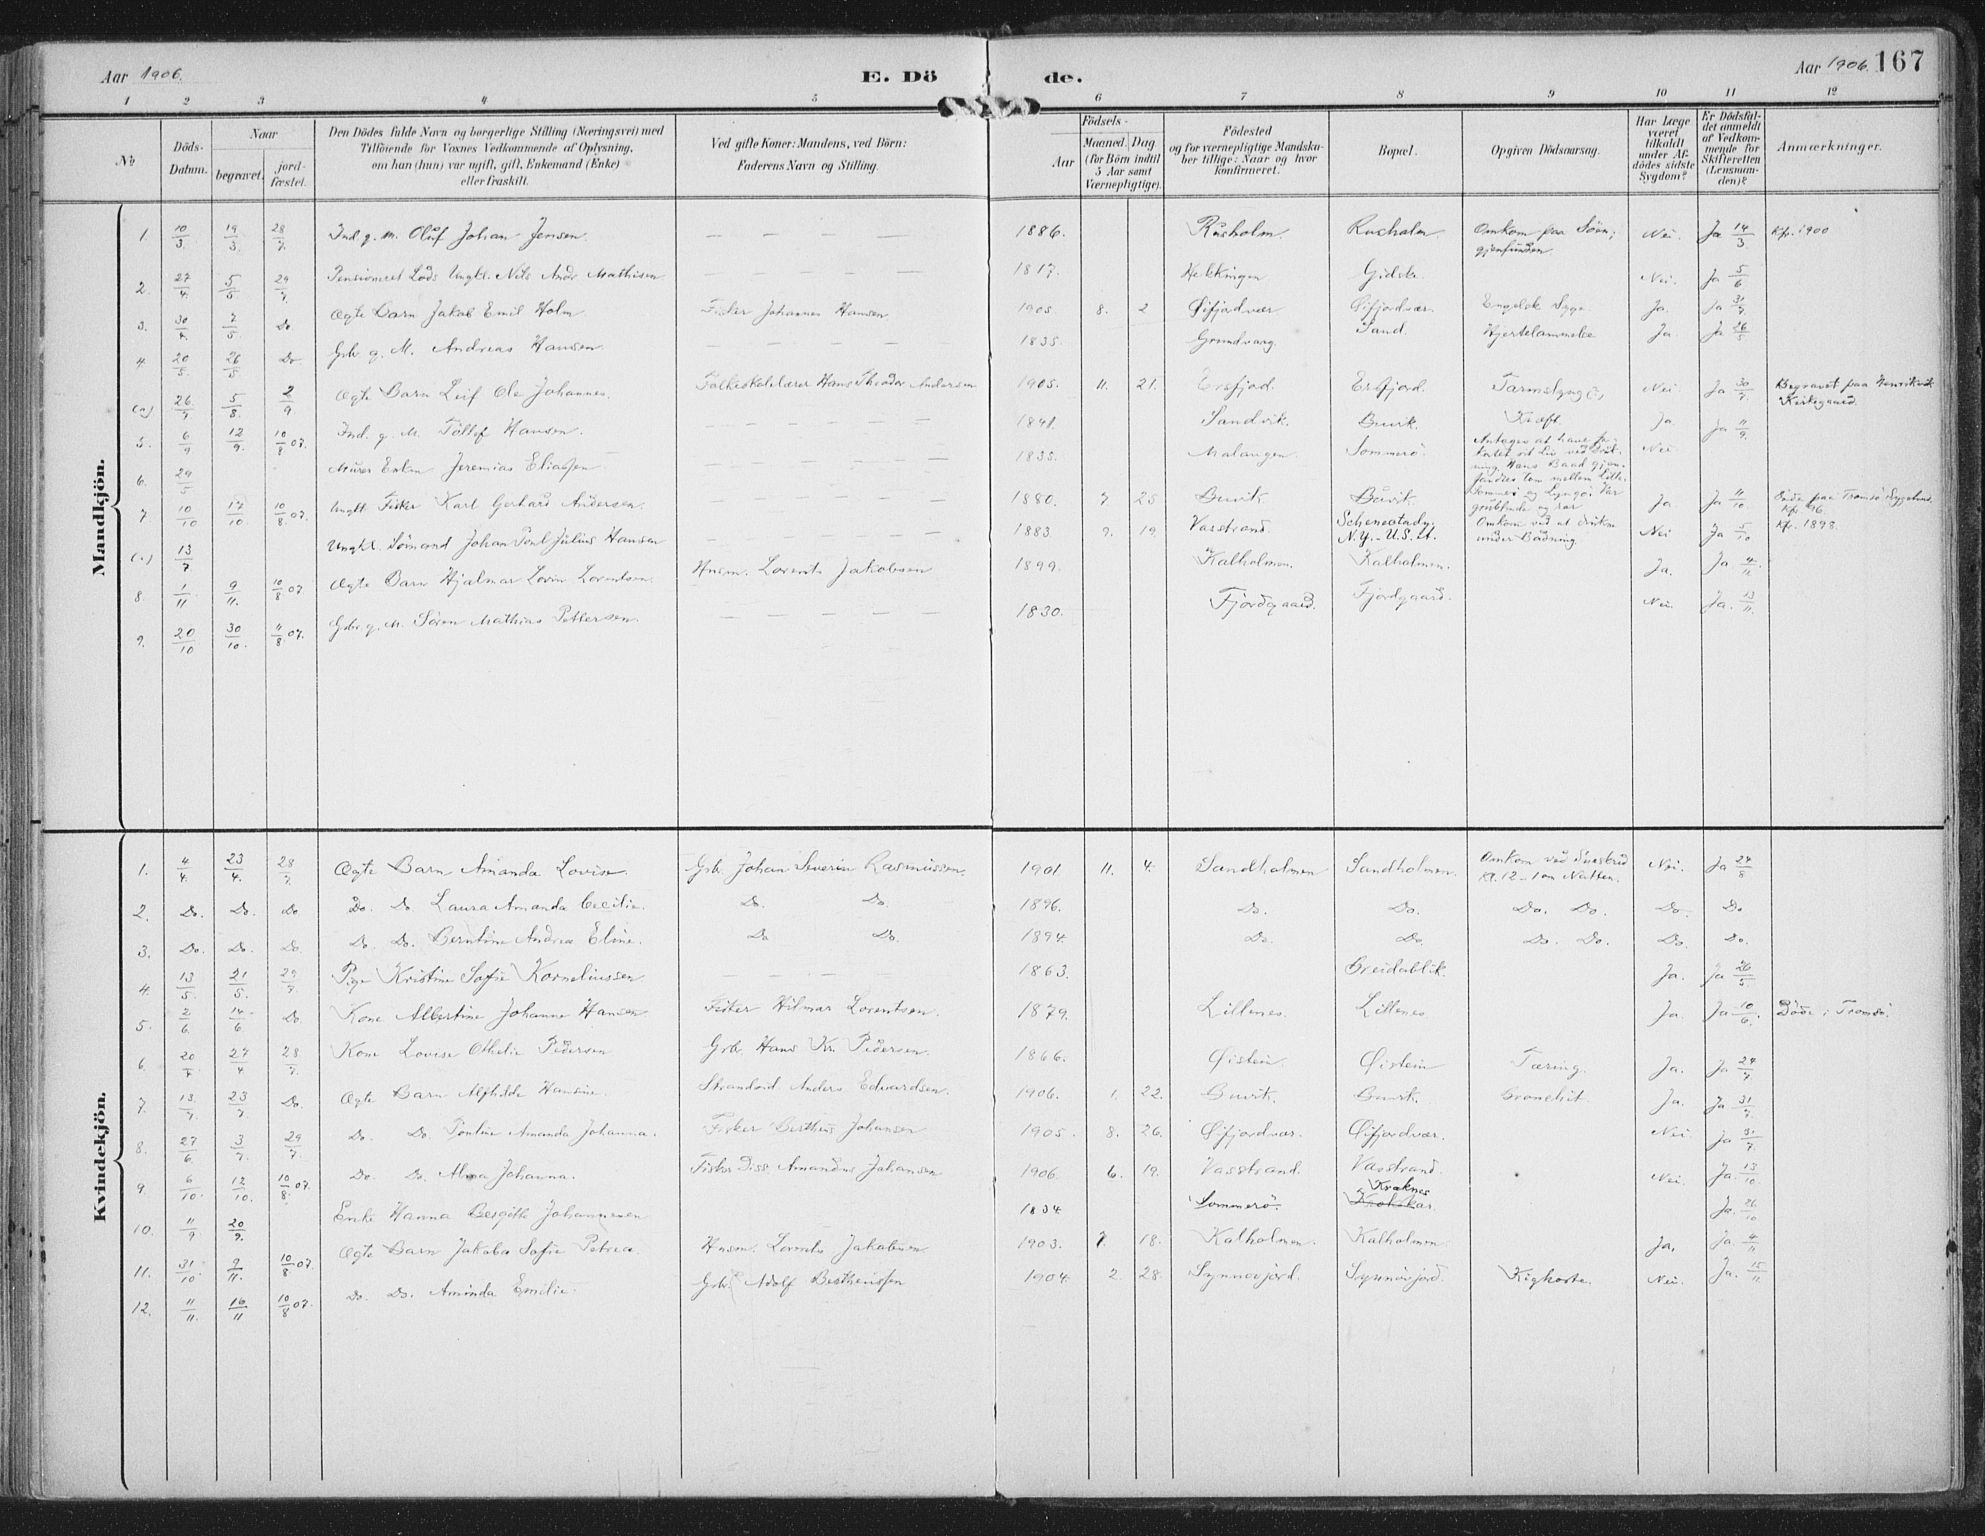 Aar 1906. E. Dö de. Aar 1906. 167
1 2 3 4 5 6 7 8 9 10 11 12
No
Döds-
Datum.
Naar
begravet.
jord-
fæstet.
Den Dödes fulde Navn og borgerlige Stilling (Næringsvei) med
Tilföiende for Voxnes Vedkommende af Oplysning,
om han (hun) var ugift, gift, Enkemand (Enke)
eller fraskilt.
Ved gifte Koner: Mandens, ved Börn:
Faderens Navn og Stilling.
Födsels-
Aar
Maaned. Dag.
(for Börn indtil
5 Aar samt
Værnepligtige).
Födested
og for værnepligtige Mandska-
ber tillige: Naar og hvor
konfirmeret.
Bopæl.
Opgiven Dödsaarsag.
Har Læge
været
tilkaldt
under Af-
dödes sidste
Sygdom?
Er Dödsfal-
det anmeldt
af Vedkom-
mende for
Skifteretten
(Lensman-
den)?
Anmærkninger.
Mandkjön.
1. 10/3 19/3 28/7 Ind. g. m. Oluf Johan Jensen. — — — — 1886. Rusholm. Rusholm. Omkom paa Söen; Nei. Ja 14/3 Kfr. 1900
gjenfunden
2. 27/4 5/5 29/7 Pensioneret Lods Ungkl. Nils Andr Mathisen — — — — 1817. Hekkingen Gidsk. Nei. Ja 5/6
3. 30/4 7/5 Do Ægte Barn Jakob Emil Holm Fisker Johannes Hansen 1905. 8. 2 Øifjordvær Øifjordvær. Engelsk Syge Ja. Ja 31/7
4. 20/5 26/5 Do Gbr. g. M. Andreas Hansen. — — — — 1835. Grundvaag. Sand. Hjertelammelse Ja. Ja 26/5
(a) 26/7 5/8 2/9 Ægte Barn Leif Ole Johannes. Folkeskolelærer Hans Theodor Andersen 1905. 11. 21. Ersfjord. Ersfjord. Tarmslyng Nei. Ja 30/7 Begravet paa
Kirkegaard.
5. 6/9 12/9. 10/8 07. Ind. g. M. Töllef Hansen. — — — — 1841. Sandvik. Buvik. Kræft. Ja. Ja 11/9.
6. 29/5 Murer Enkm Jeremias Eliassen — — — — 1835. Malangen. Sommerö. Antages at have
sit Liv ved
Hans Baad gjen-
fandtes tom mellem Lille
Sommerö og Lyngö. Var
grublende og rar Nei
7. 10/10 17/10 10/8 07. Ungkl Fisker Karl Gerhard Andersen. — — — — 1880. 7 25 Buvik. Buvik. Ja. Ja 11/10. Döde paa Tromsö Sygehus.
Kfr. 96.
(a) 13/7 Ungkl. Sömand Johan Poul Julius Hansen — — — — 1883. 9. 19. Vasstrand. Schenectady,
N.Y. - U.S.A. Omkom ved at drukne
under Badning. Nei Ja 5/10 Kfr. 1898.
8. 1/11 9/11. 10/8 07. Ægte Barn Hjalmar Lorentsen. Husm. Lorents Jakobsen 1899. Kalholmen. Kalholmen. Ja. Ja. 4/11
9. 20/10 30/10. 11/8 07. Gbr. g. M. Sören Mathias Pettersen. — — — — 1830. Fjordgaard. Fjordgaard. Nei. Ja. 13/11.
Kvindekjön.
1. 4/4. 23/4. 28/7. Ægte Barn Amanda Lovise. Gbr. Johan Severin Rasmussen. 1901. 11. 4. Sandholmen Sandholmen. Omkom ved Sneskred Nei. Ja 24/8
Kl. 12-1 om Natten.
2. Do. Do. Do Do. Do Laura Amanda Cecilie. Do. Do. 1896. Do. Do. Do. Do. Do. Do
3. Do. Do. Do Do. Do. Berntine Andrea Eline. Do Do. 1894. Do. Do. Do. Do. Do. Do.
4. 13/5 21/5. 29/7. Pige Kristine Sofie Korneliussen — — — 1863. Breidablik. Ja. Ja 26/5
5. 2/6. 14/6 Do. Kone Albertine Johanne Hansen. Fisker Hilmar Lorentsen. 1879. Lillenes. Lillenes. Ja. Ja 10/6. Döde i Tromsö.
6. 20/4. 27/4 28/7. Kone Lovise Othelie Pedersen Gbr. Hans Kr. Pedersen. 1866. Øistein. Øistein Tæring. Ja. Ja 24/4
7. 13/7. 23/7. Do. Ægte Barn Alfhilde Hansine. Strandsid. Anders Edvardsen. 1906. 1. 22. Buvik. Buvik. Bronchit. Ja. Ja 31/7.
8. 27/6. 3/7. 29/7. Do. Do. Pauline Amanda Johanna. Fisker Bertheus Johansen 1905. 8. 26. Øifjordvær. Øifjordvær. Nei. Ja 31/7.
9. 6/10. 12/10. 10/8. 07. Do. Do. Alma Johanna. Fisker Diss Amandus Johansen 1906. 6. 19. Vasstrand. Vasstrand. Nei. Ja. 13/10
10. 11/9 20/9. Enke Hanna Bergitte Johannesen 1834. Sommerö. Kræknes Ja. 26/10
11. 31/10. 9/11. 10/8 07. Ægte Barn Jakoba Sofie Petrea. Husm. Lorents Jakobsen 1903. 7. 18. Kalholmen. Kalholmen. Ja. Ja. 4/11
12. 11/11. 16/11 10/8 07. Do. Do. Aminda Emilie. Gbr. Adolf Berthenssen 1904. 2. 28. Synnövjord. Synnövjord. Kighoste. Nei. Ja. 15/11.